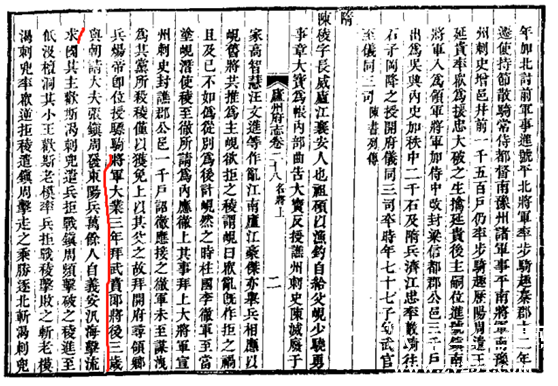 年加北討前軍事進號平北將軍率步騎趣秦郡十二年
遷使持節散騎常侍都督南豫州諸軍事平南將軍南豫
州刺史增邑并前一千五百戶仍率步騎趣歷陽周遣王
延貴率眾為援忠大破之生擒延貴後主嗣位進號鎮南
將軍入為領軍將軍加侍中改封梁信都郡公邑三千戶
出為吳興內史加秩中二千石及隋兵濟江忠率數往
石子岡降之授開府儀同三司卒時年七十七子幼武官
至儀同三司 陳書列傳
隋
陳稜字長威廬江襄安人也祖碩以漁釣自給父峴少驍勇
事章大寶為帳內部曲告大寶反授譙州刺史陳滅廢于
廬州府志卷二十八名將上 二
家高智慧汪文進等作亂江南廬江豪傑亦舉兵相應以
峴舊將共推為主峴欲拒之稜謂峴曰眾亂既作拒之禍
且及已不如偽從別為後計峴然之時柱國李徹軍至當
塗峴潛使稜至徹所請為內應徹上其事拜上大將軍宣
州刺史封譙郡公邑一千戶詔徹應接之徹軍未至謀洩
為其黨所殺稜僅以獲免上以其父之故拜開府尋領鄉
兵煬帝即位授驃騎將軍大業三年拜武賁郎將後三歲
與朝請大夫張鎮周發東陽兵萬餘人自義安汎海擊流
求國其主歡斯渴刺兜遣兵拒戰鎮周頻擊破之稜進至
低沒檀洞其小王歡斯老模率兵拒戰稜擊敗之斬老模
渴刺兜率眾逆拒稜遣鎮周擊走之乘勝逐北斬渴刺兜